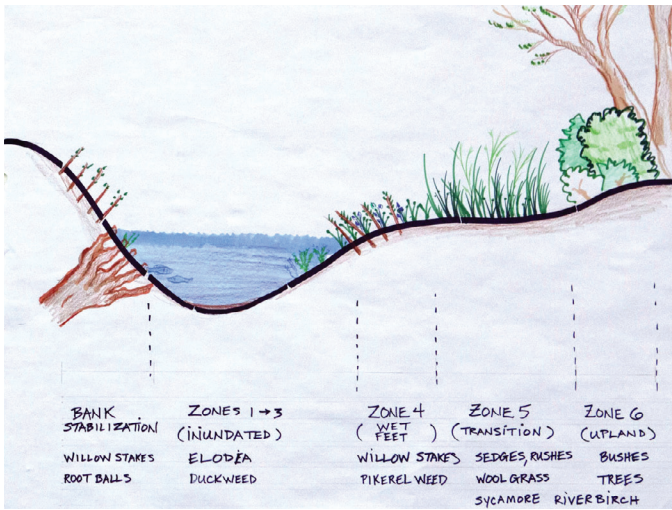 BANK
STABILIZATION
WILLOW STAKES
ROOT BALLS
ZONES 1→3
(INUNDATED)
ELODEA
DUCKWEED
ZONE 4
(WET
FEET)
WILLOW STAKES
PIKEREL WEED
ZONE 5
(TRANSITION)
SEDGES, RUSHES
WOOL GRASS
SYCAMORE RIVER BIRCH
ZONE 6
(UPLAND)
BUSHES
TREES